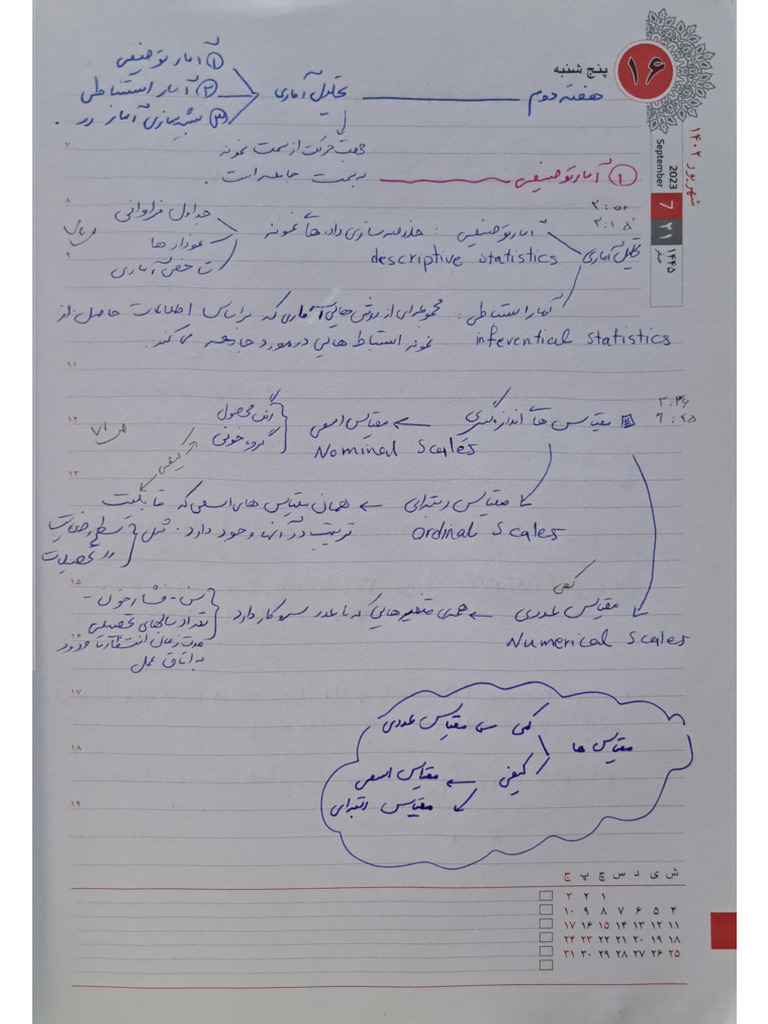 پنج شنبه ۱۶
شهریور ۱۴۰۲
2023 September
7
۲۱
۱۴۴۵ صفر
هفته دوم
تحلیل آماری
① آمار توصیفی
② آمار استنباطی
③ شبیه‌سازی آماری در
جهت حرکت از سمت نمونه
به سمت جامعه است.
① آمار توصیفی
۲:۱۵
تحلیل آماری
آمار توصیفی: خلاصه سازی داده های نمونه
descriptive statistics
جداول فراوانی
نمودار ها
شاخص آماری
آمار استنباطی: مجموعه‌ای از روش هایی آماری که بر اساس اطلاعات حاصل از
inferential statistics
نمونه استنباط هایی در مورد جامعه می کند.
۲:۳۶
۶:۲۵
مقیاس های اندازه گیری ← مقیاس اسمی
Nominal Scales
رنگ محصول
گروه خونی
ص ۷۱
کیفی
مقیاس رتبه‌ای ← همان مقیاس های اسمی که قابلیت
ordinal Scales
ترتیب در آنها وجود دارد. مثل
سطح رضایت
تحصیلات
کمی
مقیاس عددی ← همه متغیرهایی که با عدد سر و کار دارد
Numerical Scales
سن - فشار خون -
تعداد سالهای تحصیلی
مدت زمان انتظار تا ورود
به اتاق عمل
مقیاس ها
کمی ← مقیاس عددی
کیفی ← مقیاس اسمی
مقیاس رتبه‌ای
۷
۸
۹
۱۱
۱۲
۱۳
۱۵
۱۶
۱۷
۱۸
۱۹
ش ی د س چ پ ج
۱ ۲ ۳
۴ ۵ ۶ ۷ ۸ ۹ ۱۰
۱۱ ۱۲ ۱۳ ۱۴ ۱۵ ۱۶ ۱۷
۱۸ ۱۹ ۲۰ ۲۱ ۲۲ ۲۳ ۲۴
۲۵ ۲۶ ۲۷ ۲۸ ۲۹ ۳۰ ۳۱